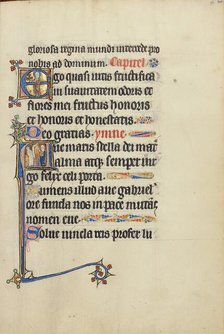 gloriosa regina mundi intercede pro
nobis ad dominum. Capitel'
Ego quasi uitis fructifica
ui suauitatem odoris et
flores mei fructus honoris
et honoris et honestatis.
Deo gratias. ymne.
Aue maris stella dei mater
alma atque semper uirgo
felix celi porta.
Sumens illud aue gabrielis
ore funda nos in pace mutans
nomen eue.
Solue uincla reis profer lu